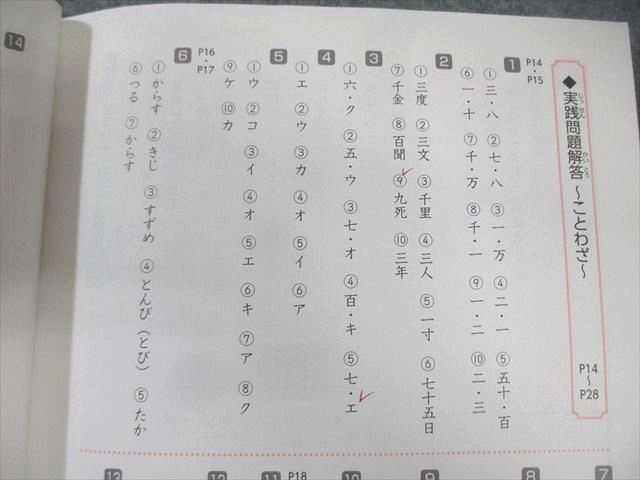 ◆実践問題解答 ～ことわざ～
じっせん かいとう
P14～P28
P14・P15
1
①三・八 ②七・八 ③一・万 ④二・一 ⑤五十・百
⑥一・十 ⑦千・万 ⑧千・一 ⑨一・二 ⑩二・三
2
①三度 ②三文 ③千里 ④三人 ⑤一寸 ⑥七十五日
⑦千金 ⑧百聞 ⑨九死 ⑩三年
3
①六・ク ②五・ウ ③七・オ ④百・キ ⑤七・エ
4
①エ ②ウ ③カ ④オ ⑤イ ⑥ア
5
①ウ ②コ ③イ ④オ ⑤エ ⑥キ ⑦ア ⑧ク
⑨ケ ⑩カ
P16・P17
6
①からす ②きじ ③すずめ ④とんび（とび） ⑤たか
⑥つる ⑦からす
14
7
8
9
10
P18
11
12
13